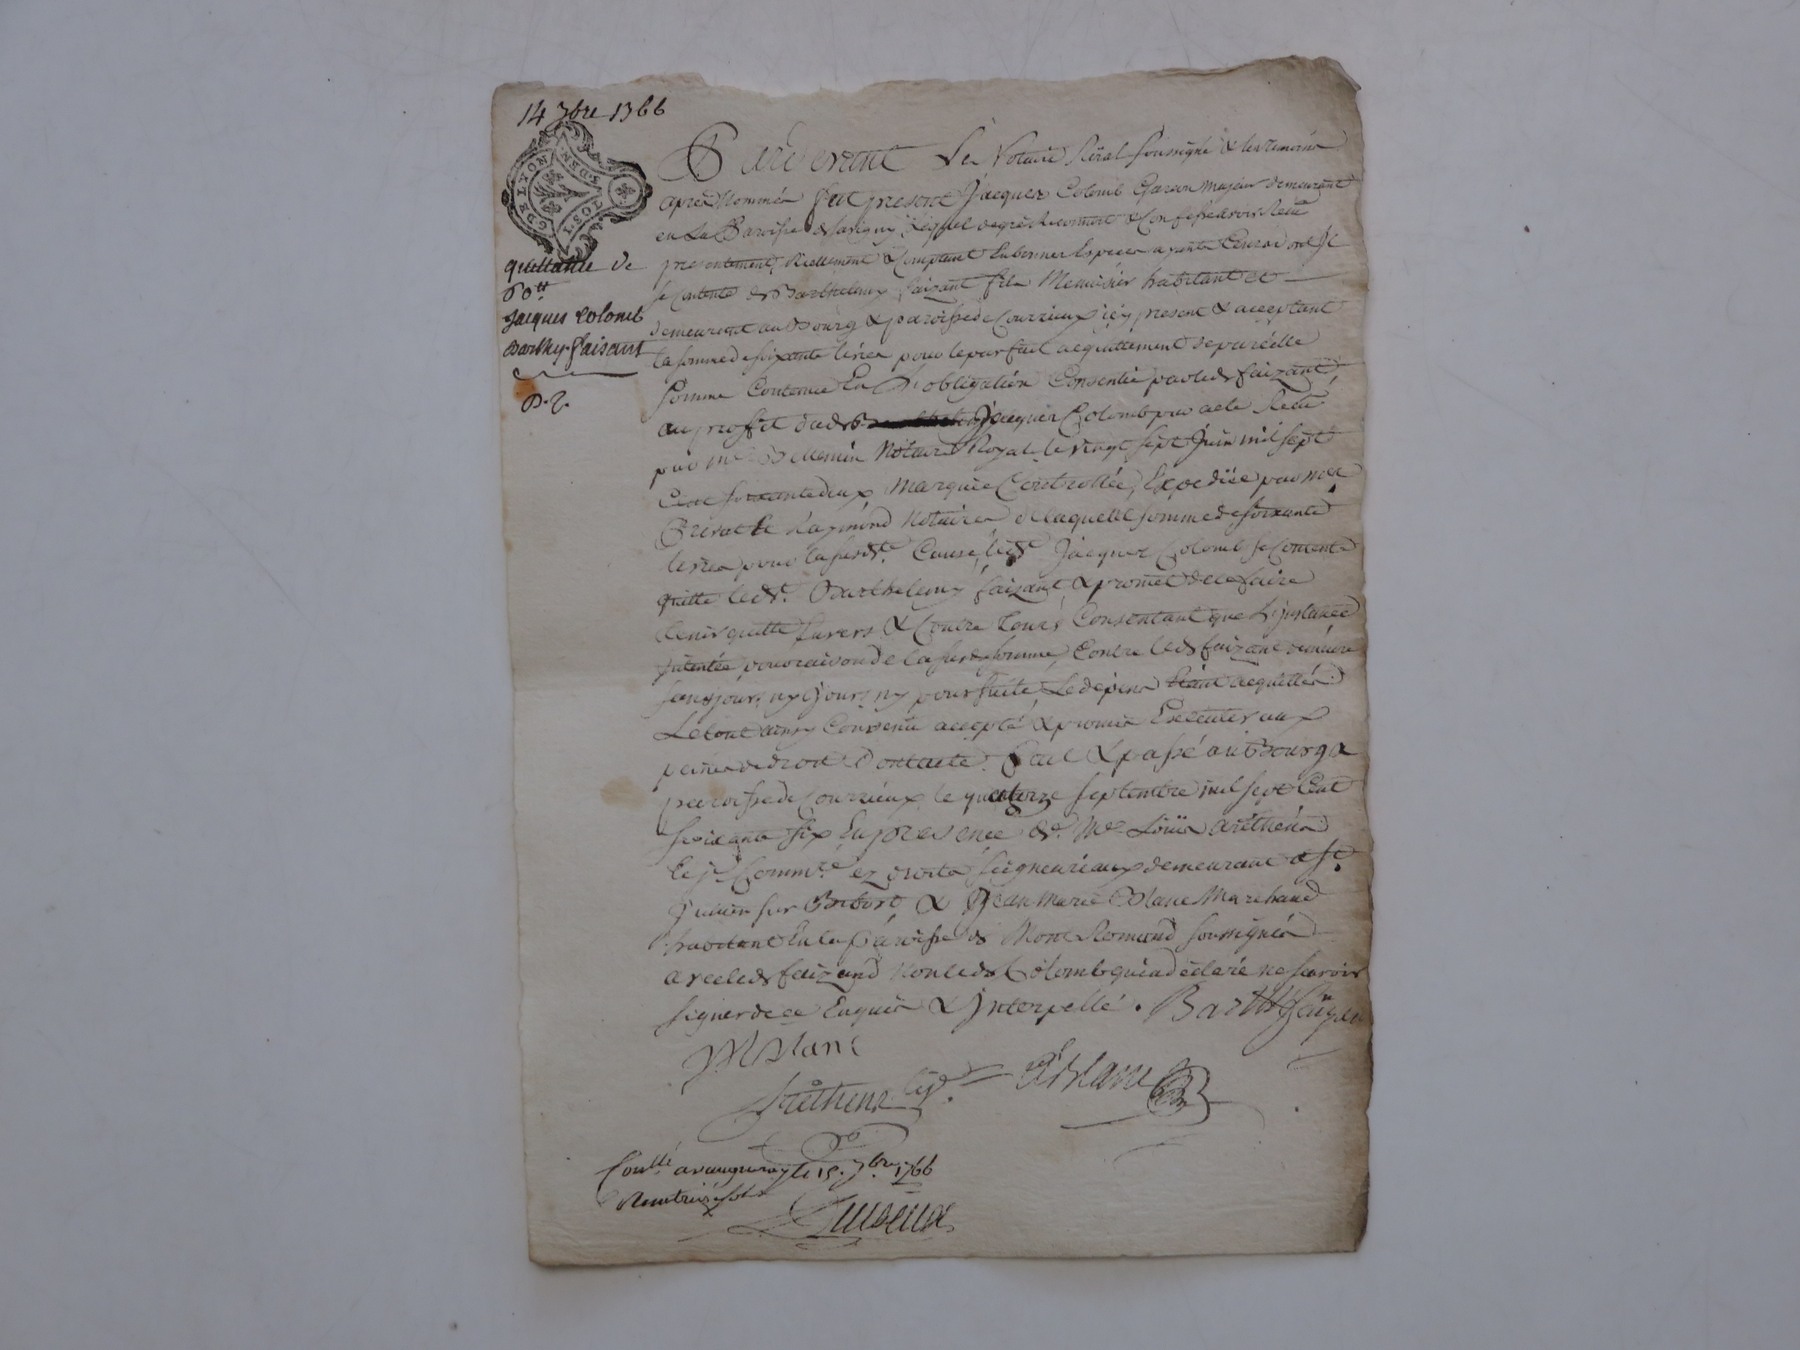 14 7bre 1766
G. DE LYON
2. S. DEN.
quittance de
60 tt
Jacques Colomb
Barthy. faisant
Pardevant Le Notaire Réal soussigné & les témoins
après Nommés fut present Jacques Colomb Garçon Majeur demeurant
en La Paroisse de Savigny Lequel degré Reconnoit & Confesse avoir Reçu
presentement, Réellement & Comptant En bonnes Especes ayants Cours dont il
se Contente de Barthelemy faizant fils Menuisier habitant et
demeurant au Bourg & paroisse de Courzieux icy present & acceptant
la somme de soixante livres pour le parfait acquittement de pareille
somme Contenue En L'obligation Consentie par led. faizant
au proffit dud. Jacques Colomb par acte Reçu
par Me. Notaire Royal le vingt sept Juin mil sept
Cent soixante deux, Marquée Controllée, Expediée par Mes
Raymond Notaires de laquelle somme de soixante
livres pour la susdte. Cause, ledt. Jacques Colomb se Contente
quitte ledt. Barthelemy faizant & promet de le faire
tenir quitte Envers & Contre tous Consentant que L'instance
intentée pour raison de la susd. somme, Contre led. faizant demeure
sans jour, ny poursuite, Le dépens étant acquittés
Le tout ainsy Convenu accepté & promis Executer aux
peines de droit Dont acte. Fait & passé au Bourg &
paroisse de Courzieux, le quatorze septembre mil sept Cent
soixante six En presence de Me Loüis
Commre. ez droits seigneuriaux demeurant a St.
Julien sur Bibost, & Jean Marie Blanc Marchand
habitant En la Paroisse de Mont Romand soussignés
avec led. faizand Non led. Colomb qui a déclaré ne sçavoir
signer de ce Enquis & Interpellé. Barth
JM Blanc
Blanc
Conllé a vaugneray le 15. 7bre. 1766
Reçu treize sols